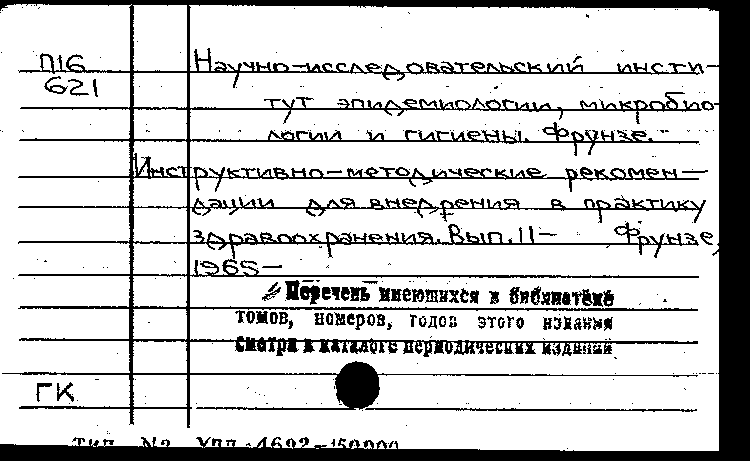 П16
621
Научно-исследовательский инсти-
тут эпидемиологии, микробио-
логии и гигиены. Фрунзе.-
Инструктивно-методические рекомен-
дации для внедрения в практику
здравоохранения. Вып. 11- Фрунзе,
1965-
Перечень имеющихся в библиотеке
томов, номеров, годов этого издания
Смотри в каталоге периодических изданий
ГК
тип. №3 УПЛ 4692-150000